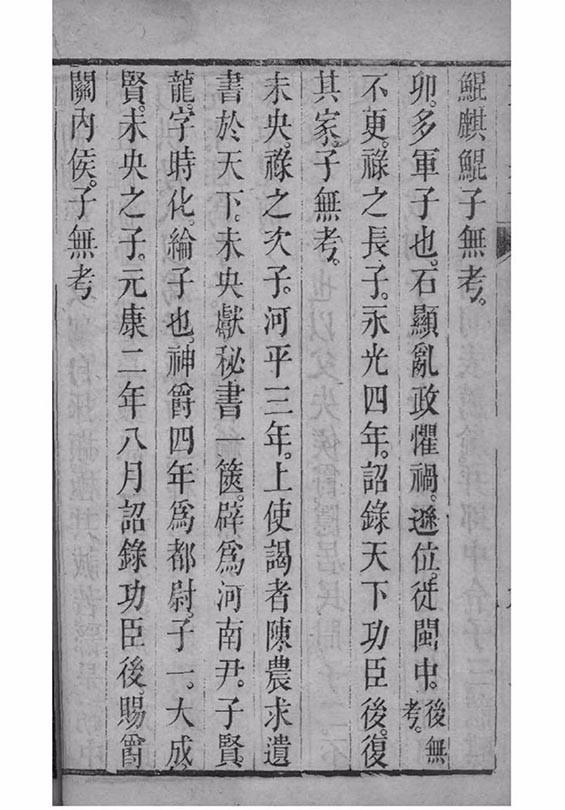 鯤麒鯤子無考。
卯。多軍子也。石顯亂政懼禍。遜位。徙閩中。後無考。
不更。祿之長子。永光四年。詔錄天下功臣後。復
其家。子無考。
未央。祿之次子。河平三年。上使謁者陳農求遺
書於天下。未央獻秘書一篋。辟爲河南尹。子賢。
龍。字時化。綸子也。神爵四年爲都尉。子一。大成。
賢。未央之子。元康二年八月詔錄功臣後。賜爵
關內侯。子無考。